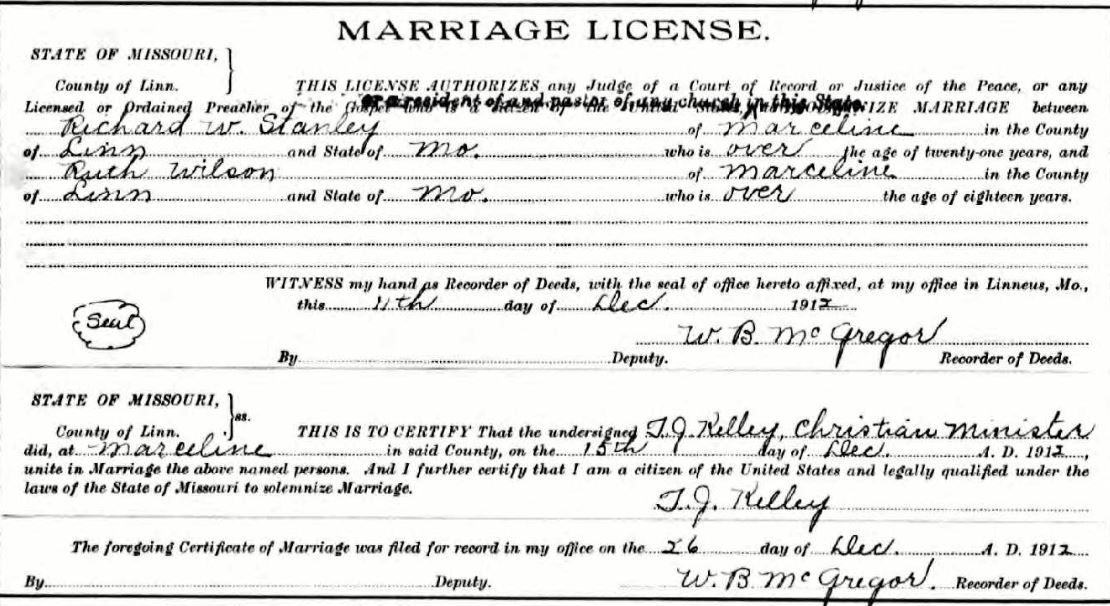 MARRIAGE LICENSE.
STATE OF MISSOURI,
County of Linn. THIS LICENSE AUTHORIZES any Judge of a Court of Record or Justice of the Peace, or any
or a resident of and pastor of any church in this State.
Licensed or Ordained Preacher of the Gospel who is a citizen of the United States, SOLEMNIZE MARRIAGE between
Richard W. Stanley of Marceline in the County
of Linn and State of Mo. who is over the age of twenty-one years, and
Ruth Wilson of Marceline in the County
of Linn and State of Mo. who is over the age of eighteen years.
WITNESS my hand as Recorder of Deeds, with the seal of office hereto affixed, at my office in Linneus, Mo.,
this 11th day of Dec. 1912
Seal
W. B. McGregor
By Deputy. Recorder of Deeds.
STATE OF MISSOURI,
ss.
County of Linn. THIS IS TO CERTIFY That the undersigned T. J. Kelley, Christian Minister
did, at Marceline in said County, on the 15th day of Dec. A. D. 1912,
unite in Marriage the above named persons. And I further certify that I am a citizen of the United States and legally qualified under the
laws of the State of Missouri to solemnize Marriage.
T. J. Kelley
The foregoing Certificate of Marriage was filed for record in my office on the 26 day of Dec. A. D. 1912
By Deputy. W. B. McGregor. Recorder of Deeds.